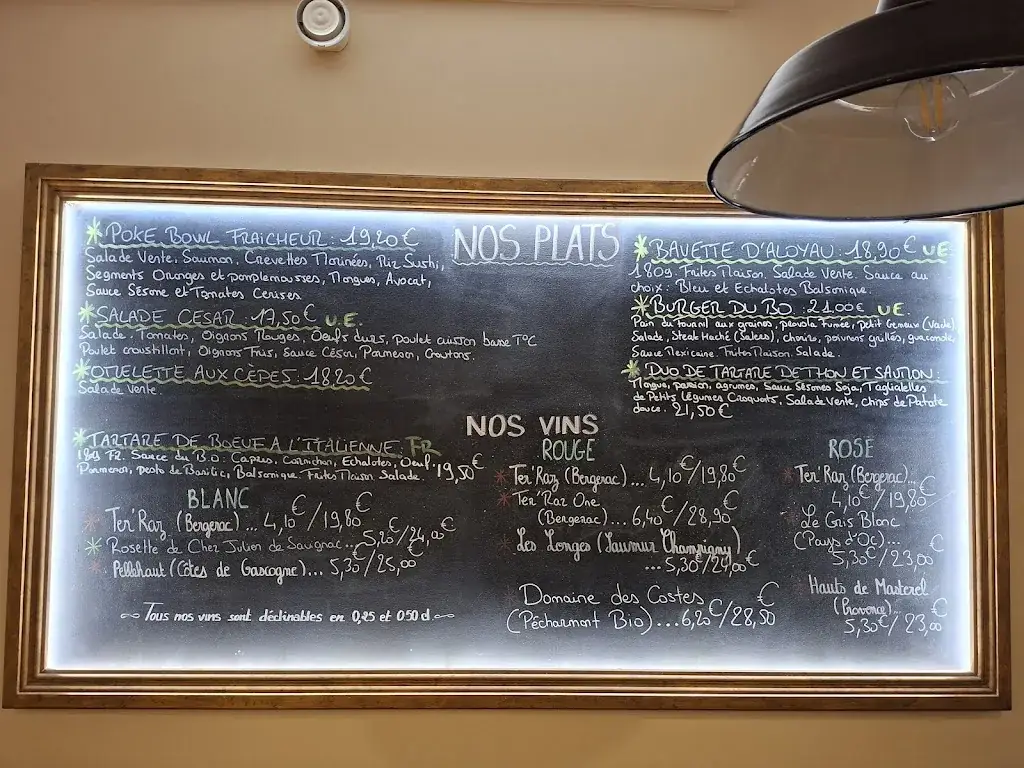 NOS PLATS
* POKE BOWL FRAICHEUR : 19,20 €
Salade Verte, Saumon, Crevettes Marinées, Riz Sushi,
Segments Oranges et pomplemousses, Mangues, Avocat,
Sauce Sésame et Tomates Cerises
* SALADE CESAR : 17,50 € U.E.
Salade, Tomates, Oignons Rouges, Oeufs durs, poulet cuisson basse T°C
Poulet croustillant, Oignons Frits, Sauce César, Parmesan, Croutons.
* OMELETTE AUX CÈPES : 18,20 €
Salade Verte.
* TARTARE DE BOEUF A L'ITALIENNE FR
180g FR. Sauce du B.O. Capres, Cornichon, Echalotes, Oeuf.
Parmesan, pesto de Basilic, Balsamique. Frites Maison Salade. 19,50 €
* BAVETTE D'ALOYAU : 18,90 € U.E
180g. Frites Maison. Salade Verte. Sauce au
choix : Bleu et Echalotes Balsamique.
* BURGER DU BO : 21.00 € U.E
Pain du fournil aux graines, provola Fumée, Petit Gemeux (Vache)
Salade, Steak Haché (Salers), chorizo, poivrons grillés, guacamole,
Sauce Mexicaine. Frites Maison. Salade.
* DUO DE TARTARE DE THON ET SAUMON :
Mangue, passion, agrumes, Sauce Sésames Soja, Tagliatelles
de Petits Légumes Croquants, Salade Verte, Chips de Patate
douce. 21,50 €
NOS VINS
BLANC
* Ter'Raz (Bergerac)... 4,10 € / 19,80 €
* Rosette de Chez Julien de Savignac... 5,20 € / 24,00 €
* Pellehaut (Côtes de Gascogne)... 5,30 / 25,00
~ Tous nos vins sont déclinables en 0,25 et 0,50 cl ~
ROUGE
* Ter'Raz (Bergerac)... 4,10 € / 19,80 €
* Ter'Raz One
(Bergerac)... 6,40 € / 28,90 €
* Les Longes (Saumur Champigny)
... 5,30 € / 24,00 €
Domaine des Costes
(Pécharmant Bio)... 6,20 € / 28,50 €
ROSÉ
* Ter'Raz (Bergerac)...
4,10 € / 19,80 €
Le Gris Blanc
(Pays d'Oc)...
5,30 € / 23,00 €
Hauts de Masterel
(Provence)...
5,30 € / 23,00 €